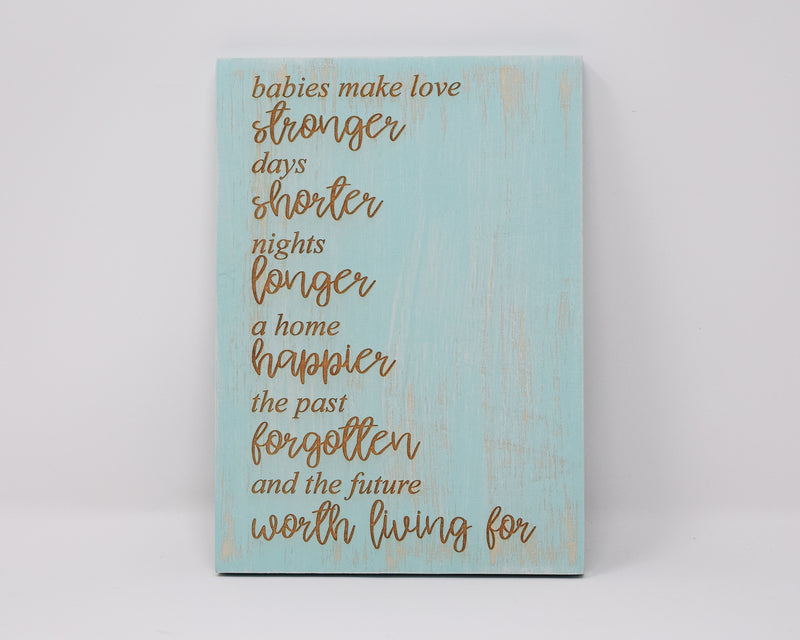 babies make love
stronger
days
shorter
nights
longer
a home
happier
the past
forgotten
and the future
worth living for